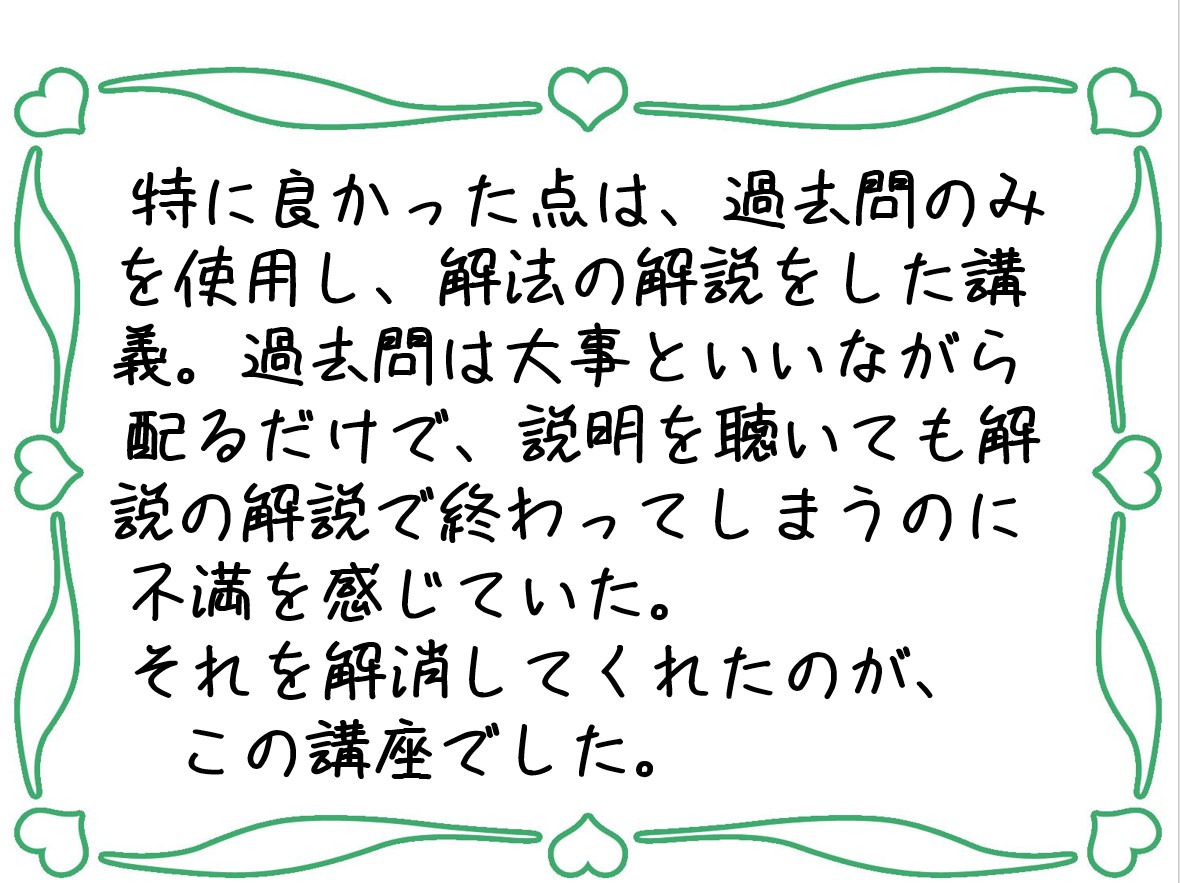 特に良かった点は、過去問のみ
を使用し、解法の解説をした講
義。過去問は大事といいながら
配るだけで、説明を聴いても解
説の解説で終わってしまうのに
不満を感じていた。
それを解消してくれたのが、
この講座でした。